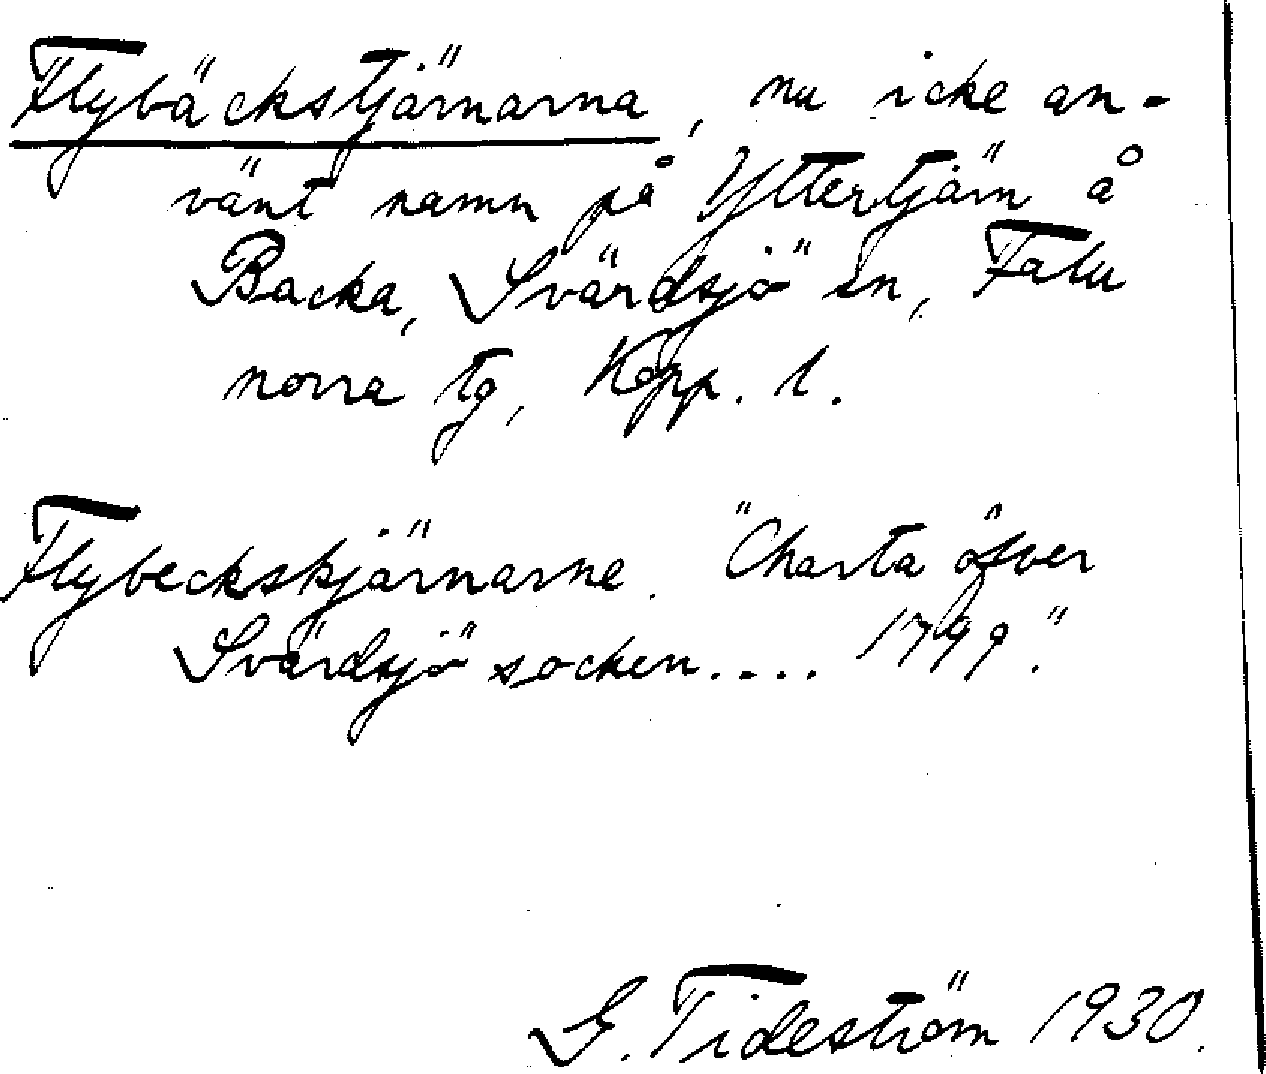 Flybäckstjärnarna, nu icke an-
vänt namn på Yttertjärn å
Backa, Svärdsjö sn, Falu
norra tg, Kopp. l.
Flybeckskjärnarne. "Charta öfver
Svärdsjö socken.... 1799."
G. Tideström 1930.